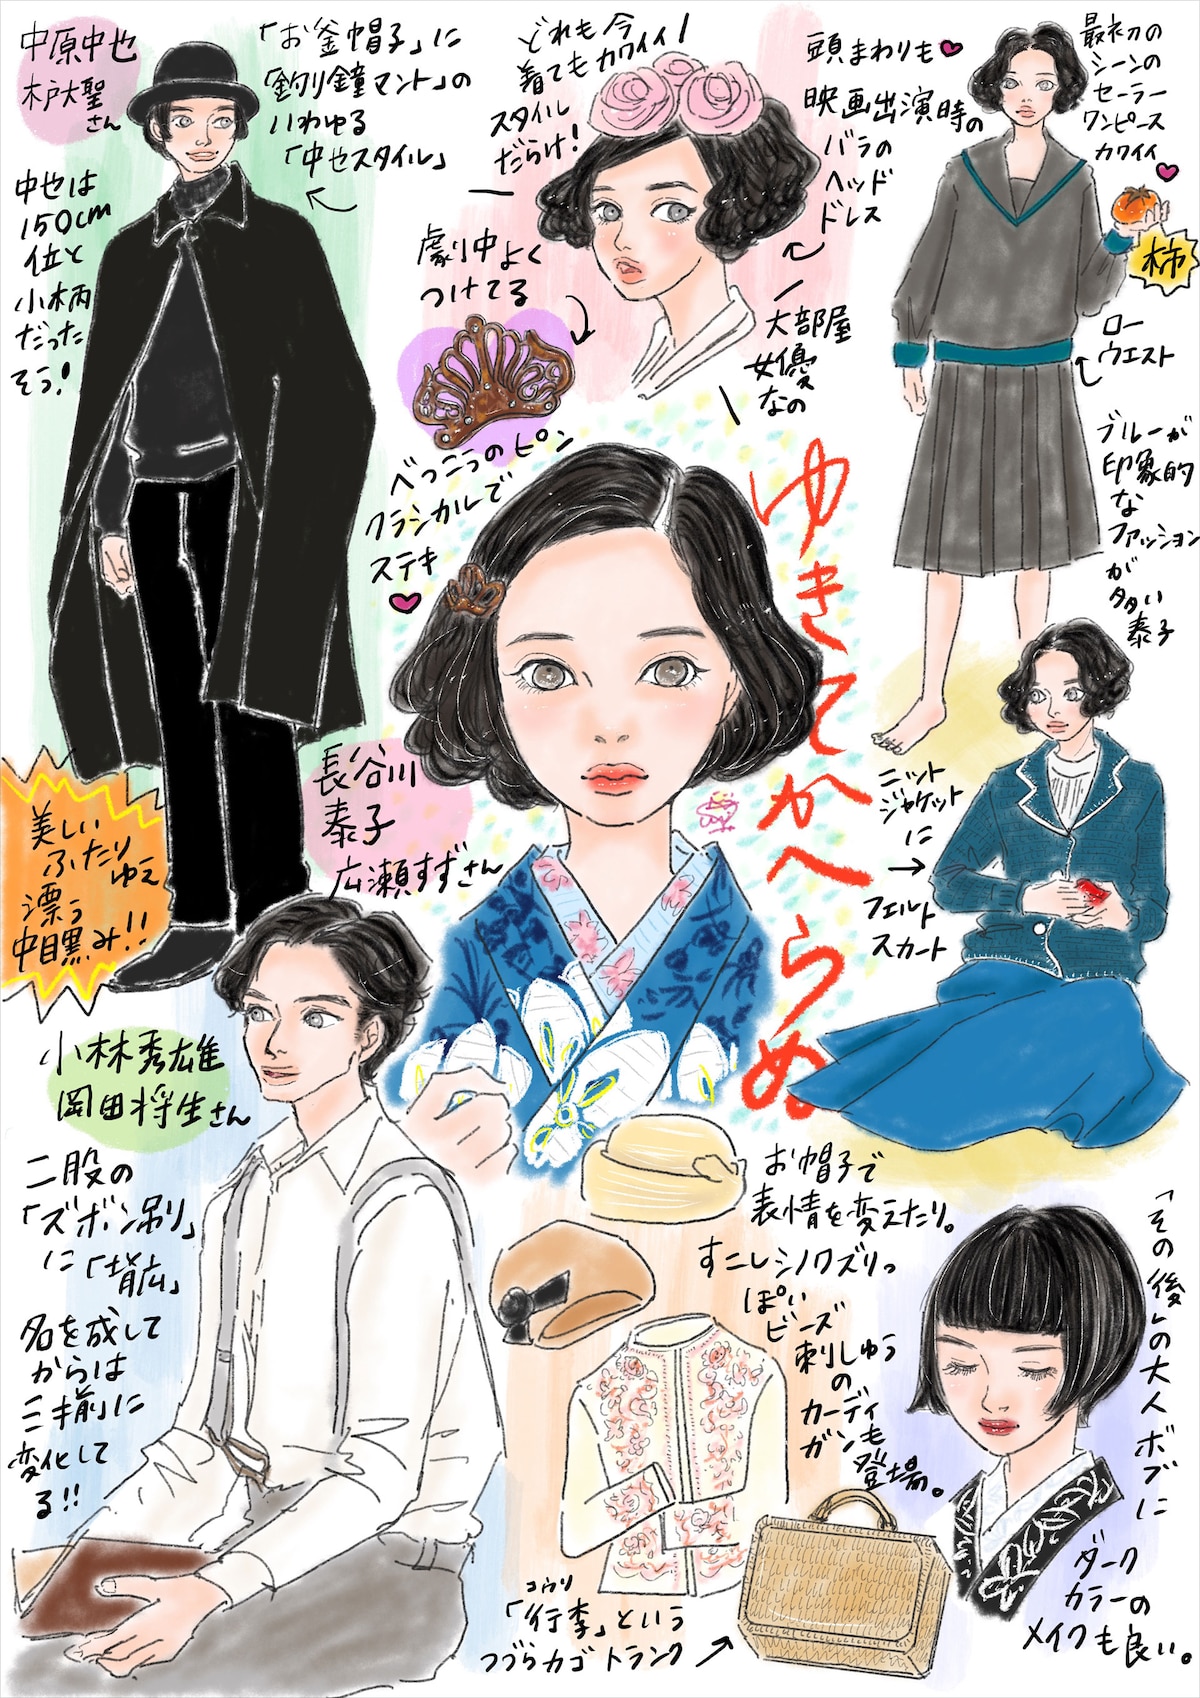 中原中也
木戸大聖
さん
「お釜帽子」に
「釣り鐘マント」の
いわゆる
「中也スタイル」
中也は
150cm
位と
小柄
だった
そう!
どれも今
着てもカワイイ!
スタイル
だらけ!
頭まわりも
映画出演時の
バラの
ヘッド
ドレス
大部屋
女優
なの
最初の
シーンの
セーラー
ワンピース
カワイイ
柿
ロー
ウエスト
ブルーが
印象的
な
ファッション
が
多い
泰子
劇中よく
つけてる
べっこうのピン
クラシカルで
ステキ
ゆきてかへらぬ
長谷川
泰子
広瀬すずさん
美しい
ふたり
ゆえ
漂う
中目黒み!!
ニット
ジャケット
に
フェルト
スカート
小林秀雄
岡田将生さん
二股の
「ズボン吊り」
に「背広」
名を成して
からは
三揃に
変化して
る!!
お帽子で
表情を変えたり。
すこしシノワズリっ
ぽい
ビーズ
刺しゅう
の
カーディ
ガンも
登場。
「その後」の大人ボブに
ダーク
カラーの
メイクも良い。
コウリ
「行李」という
つづらカゴトランク